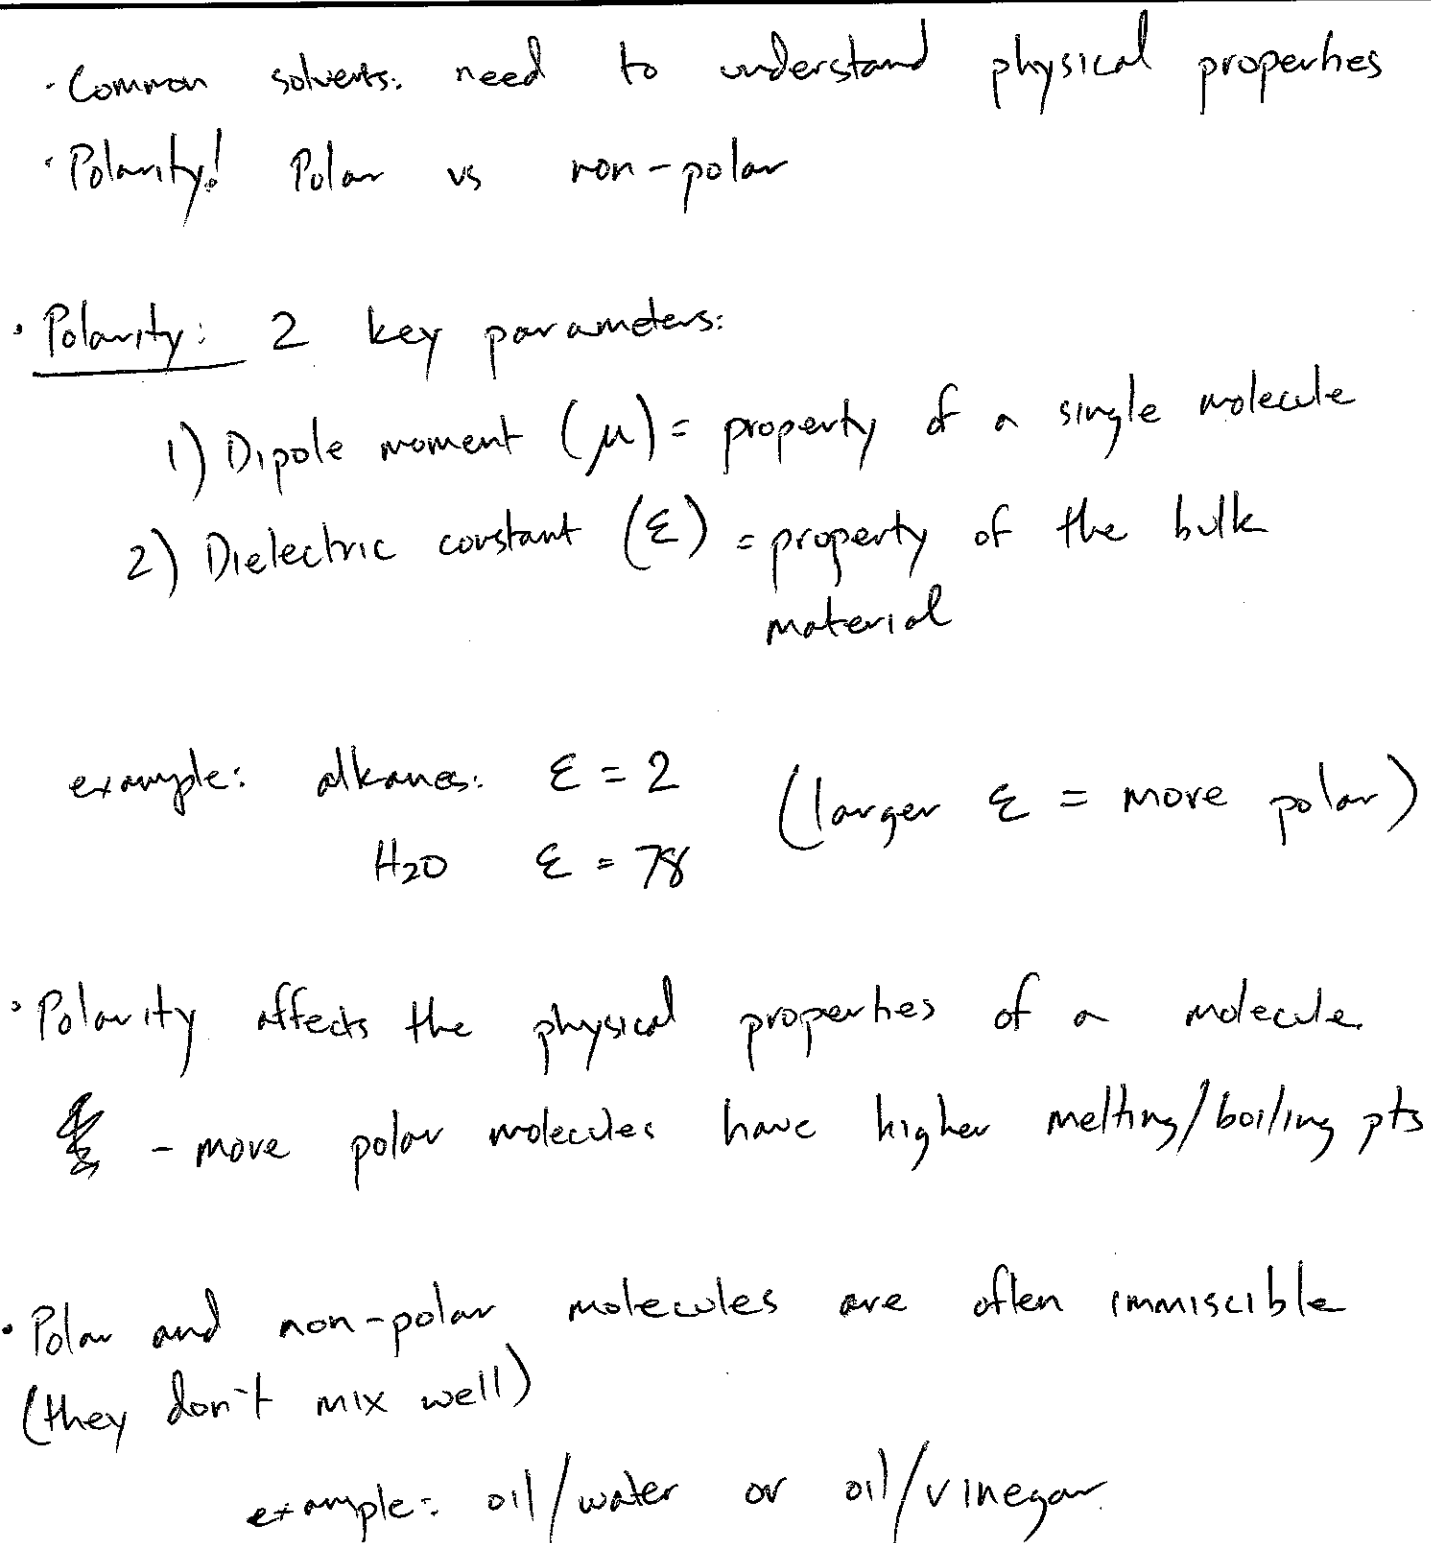 · Common solvents: need to understand physical properties
· Polarity! Polar vs non-polar
· Polarity: 2 key parameters:
1) Dipole moment (μ) = property of a single molecule
2) Dielectric constant (ε) = property of the bulk
material
example: alkanes: ε = 2 (larger ε = more polar)
H2O ε = 78
· Polarity affects the physical properties of a molecule.
- more polar molecules have higher melting/boiling pts
· Polar and non-polar molecules are often immiscible
(they don't mix well)
example: oil/water or oil/vinegar.